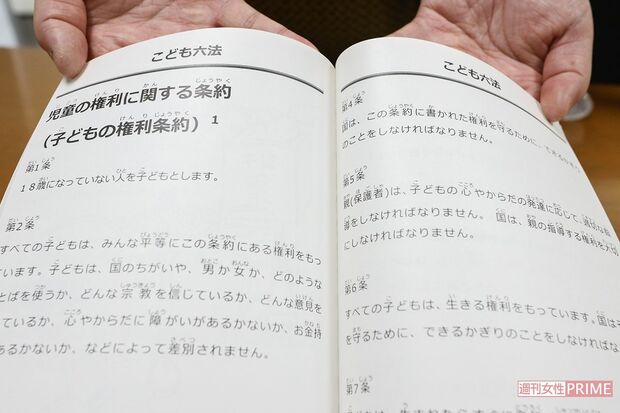 こども六法
児童の権利に関する条約
(子どもの権利条約) 1
第1条
18歳になっていない人を子どもとします。
第2条
すべての子どもは、みんな平等にこの条約にある権利をもっ
ています。子どもは、国のちがいや、男か女か、どのような
とばを使うか、どんな宗教を信じているか、どんな意見を
ているか、心やからだに障がいがあるかないか、お金持
あるかないか、などによって差別されません。
こども六法
第4条
国は、この条約に書かれた権利を守るために、できるかぎり
のことをしなければなりません。
第5条
親(保護者)は、子どもの心やからだの発達に応じて、適切な指
導をしなければなりません。国は、親の指導する権利を大切
にしなければなりません。
第6条
すべての子どもは、生きる権利をもっています。国はそ
を守るために、できるかぎりのことをしなければな
第7条
週刊女性PRIME